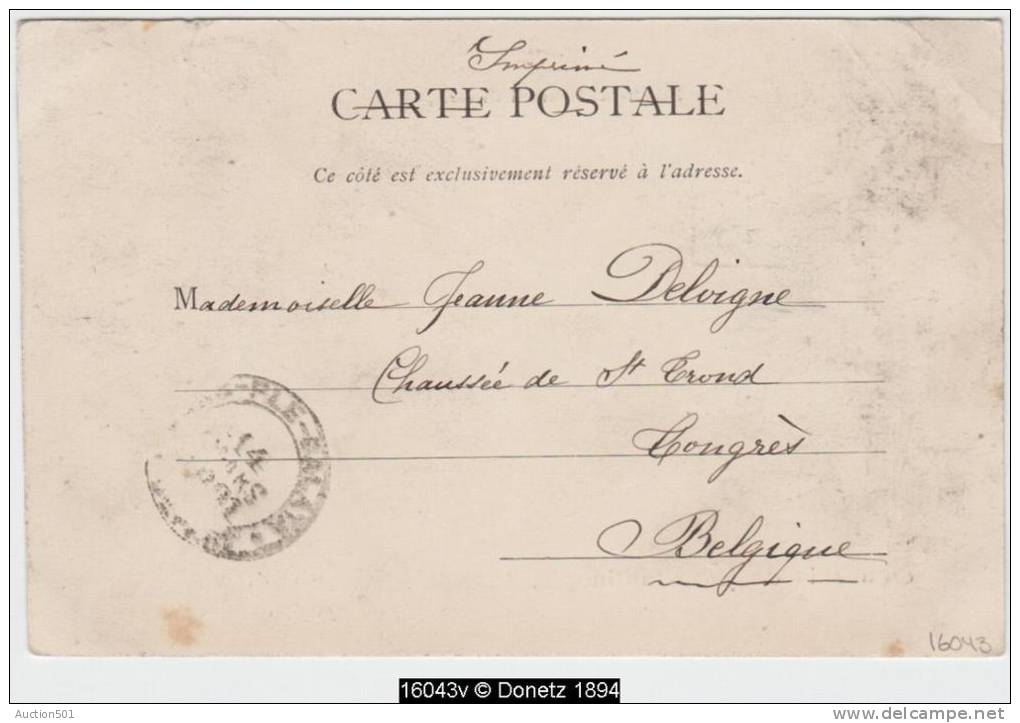 Imprimé
CARTE POSTALE
Ce côté est exclusivement réservé à l'adresse.
Mademoiselle Jeanne Delvigne
Chaussée de St Trond
Tongrès
Belgique
PLE-GALATA
14
MARS
16043
16043v © Donetz 1894
Auction501
delcampe.net